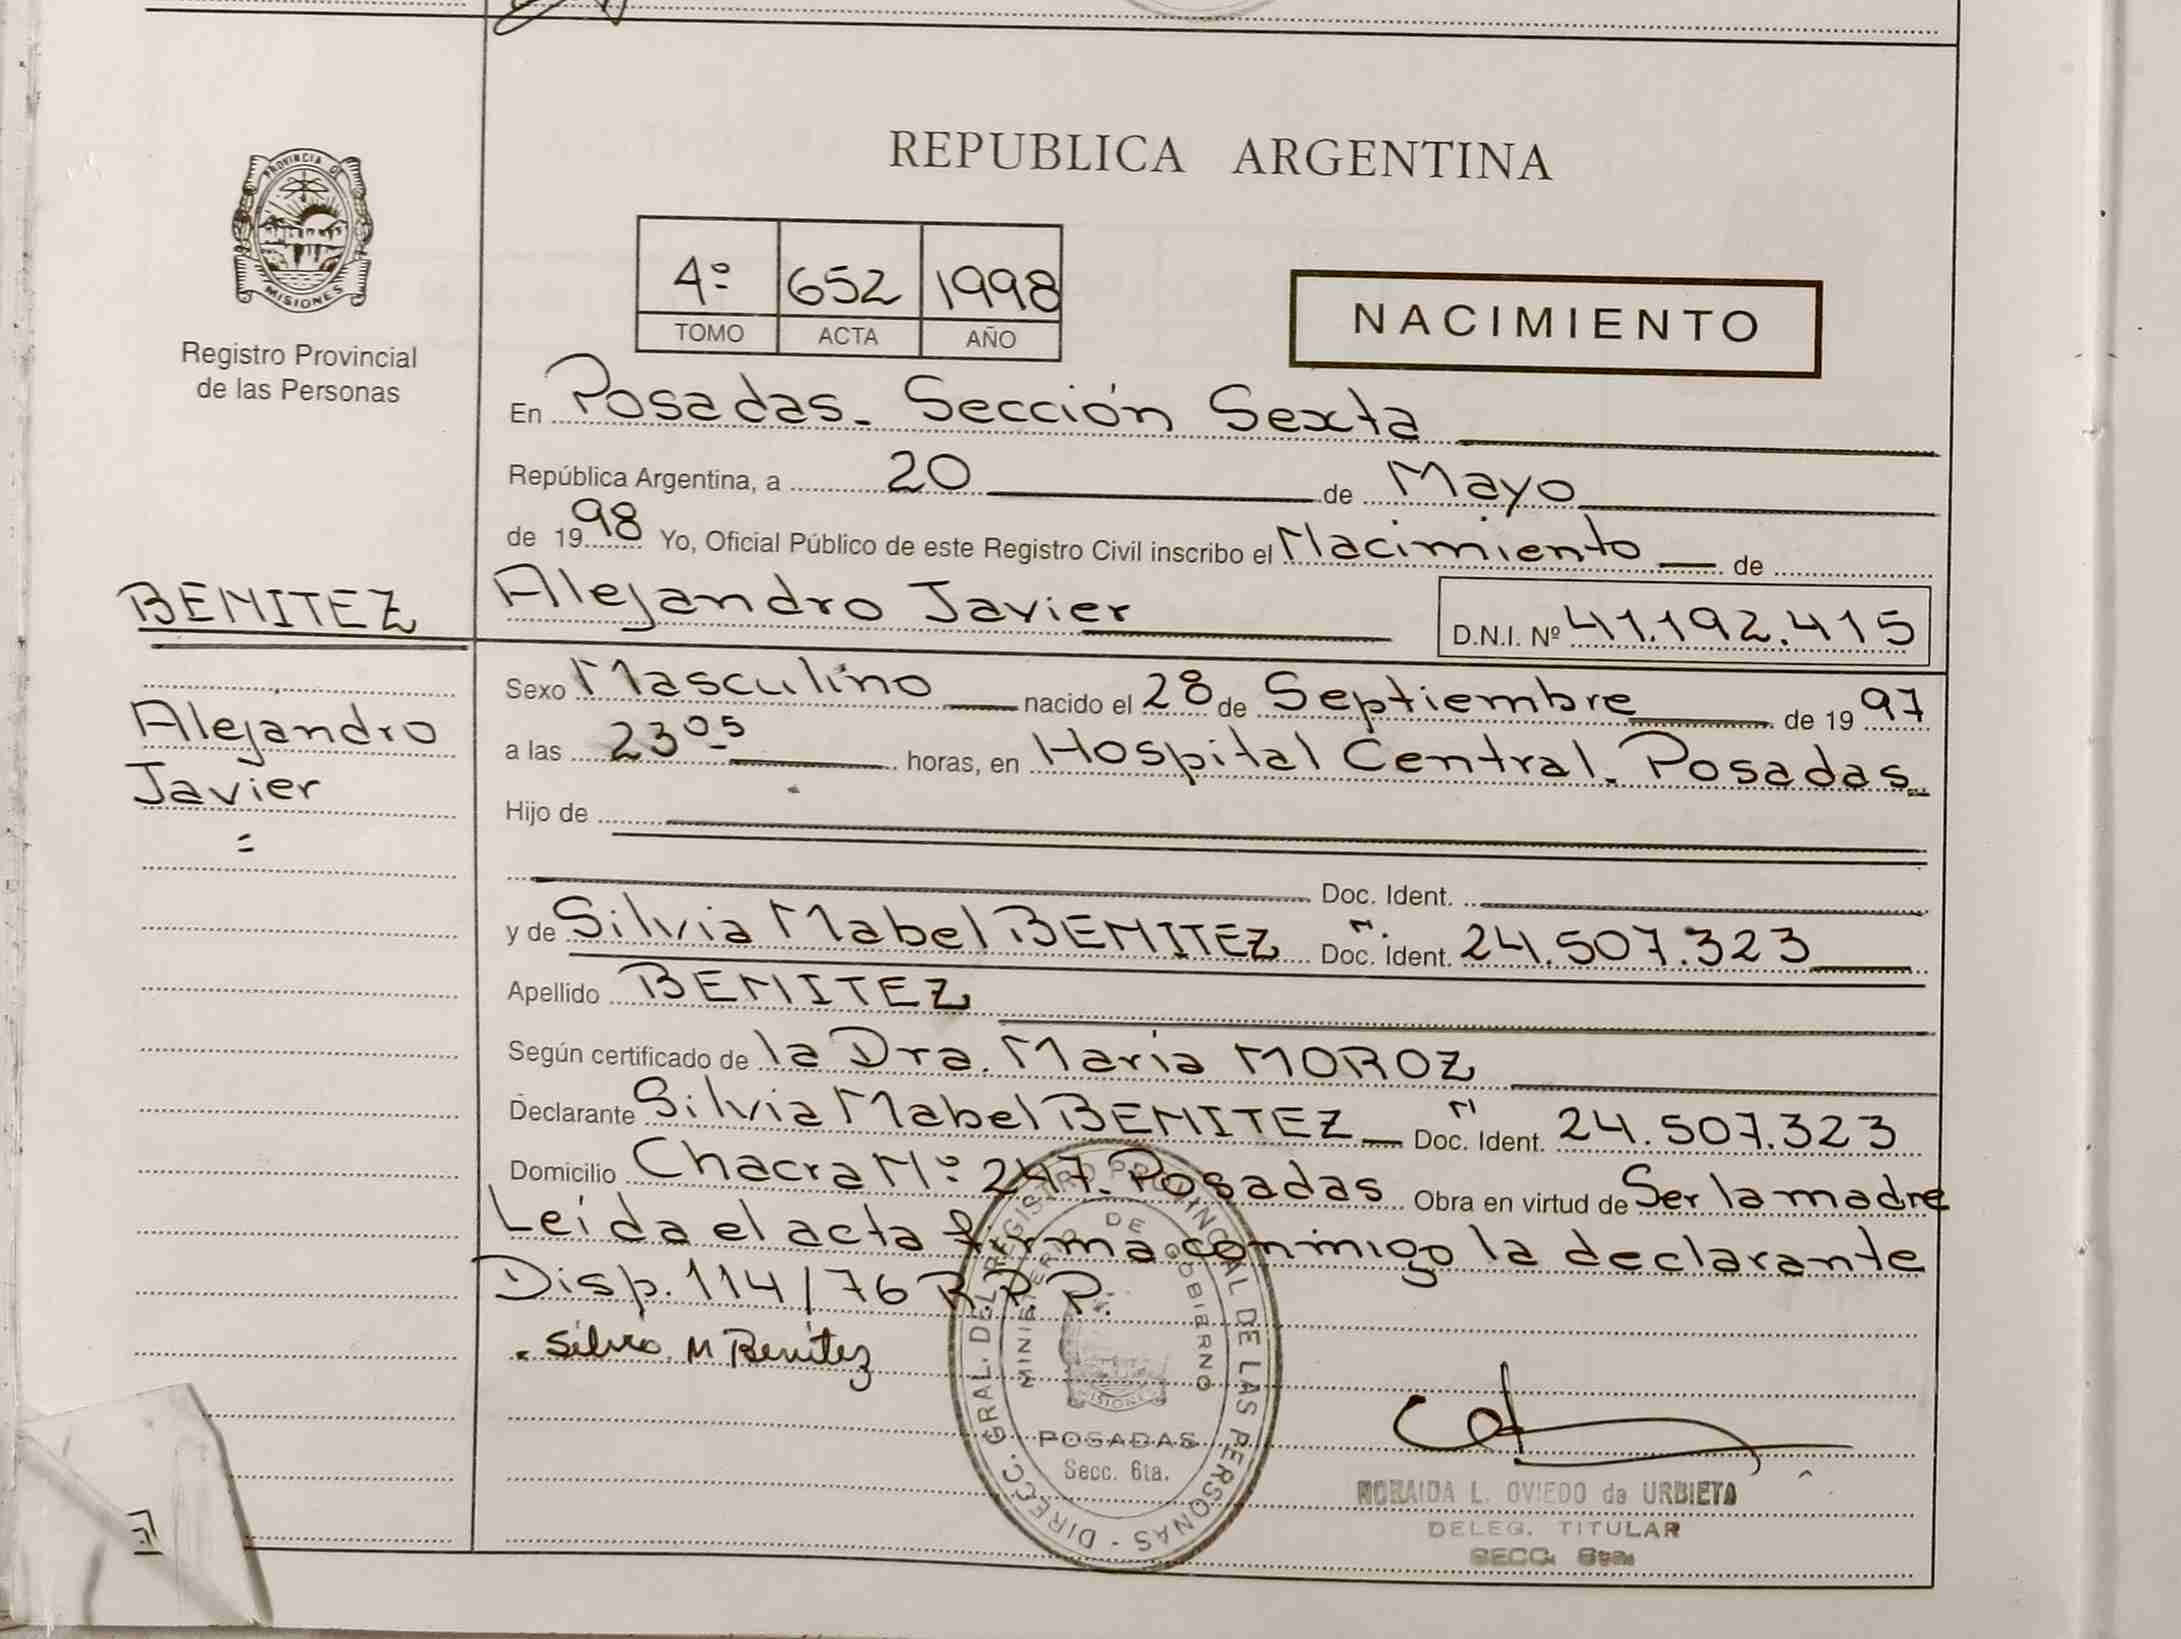 REPUBLICA ARGENTINA
PROVINCIA DE
MISIONES
Registro Provincial
de las Personas
4º 652 1998
TOMO ACTA AÑO
NACIMIENTO
En Posadas. Sección Sexta
República Argentina, a 20 de Mayo
de 1998 Yo, Oficial Público de este Registro Civil inscribo el Nacimiento de
BENITEZ
Alejandro Javier D.N.I. Nº 41.192.415
Alejandro
Javier
=
Sexo Masculino nacido el 28 de Septiembre de 1997
a las 23⁰⁵ horas, en Hospital Central. Posadas.
Hijo de
Doc. Ident.
y de Silvia Mabel BENITEZ Doc. Ident. N. 24.507.323
Apellido BENITEZ
Según certificado de la Dra. María MOROZ
Declarante Silvia Mabel BENITEZ Doc. Ident. N 24.507.323
Domicilio Chacra Nº 247. Posadas Obra en virtud de Ser la madre
Leída el acta firma conmigo la declarante
Disp. 114/76 R.P.P.
Silvia M Benitez
DIRECC. GRAL. DEL REGISTRO PROVINCIAL DE LAS PERSONAS -
MINISTERIO DE GOBIERNO
MISIONES
POSADAS
Secc. 6ta.
NORAIDA L. OVIEDO de URBIETA
DELEG. TITULAR
SECC. 6ta.